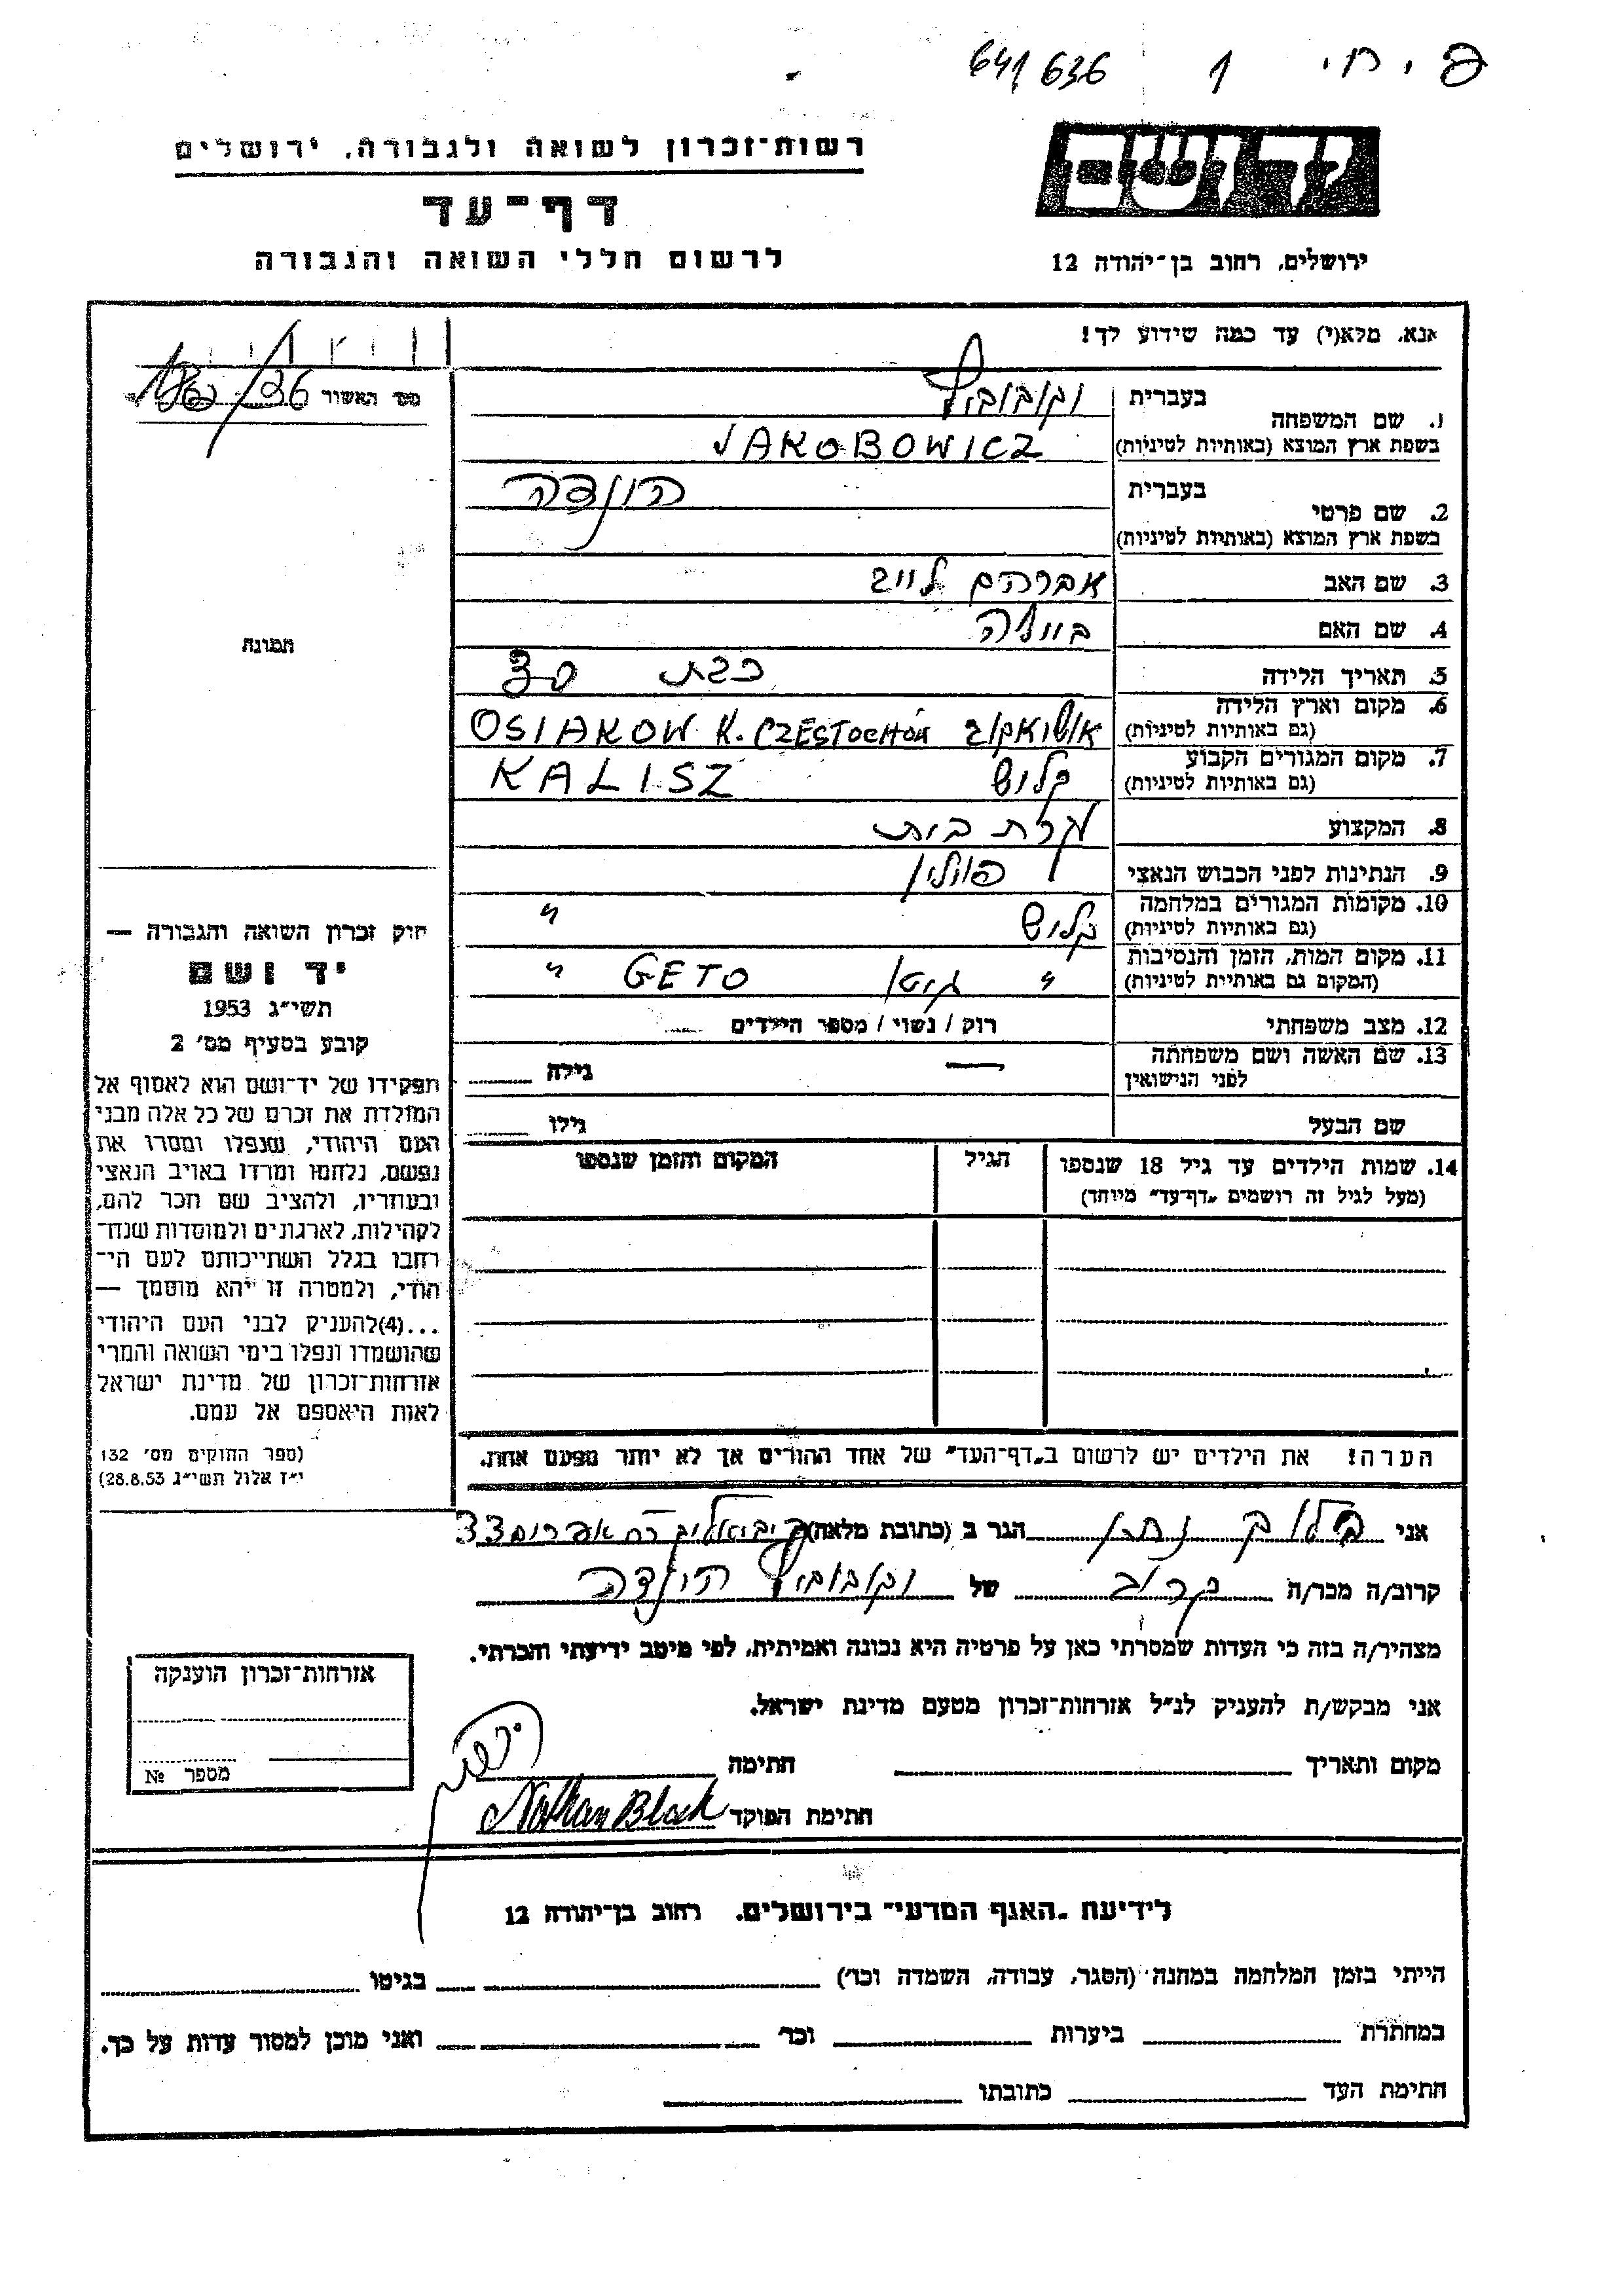 641636 1
רשות-זכרון לשואה ולגבורה, ירושלים
דף-עד
לרשום חללי השואה והגבורה
ירושלים, רחוב בן-יהודה 12
אנא, מלא(י) עד כמה שידוע לך!
מס' האשור
1. שם המשפחה
בעברית יקובוביץ
בשפת ארץ המוצא (באותיות לטיניות) JAKOBOWICZ
2. שם פרטי
בעברית הינדה
בשפת ארץ המוצא (באותיות לטיניות)
3. שם האב אברהם לייב
4. שם האם ביילה
5. תאריך הלידה כבת 30
6. מקום וארץ הלידה (גם באותיות לטיניות) אושיאקוב OSIAKOW K. CZESTOCHÓW
7. מקום המגורים הקבוע (גם באותיות לטיניות) קליש KALISZ
8. המקצוע עקרת בית
9. הנתינות לפני הכבוש הנאצי פולין
10. מקומות המגורים במלחמה (גם באותיות לטיניות) קליש "
11. מקום המות, הזמן והנסיבות (המקום גם באותיות לטיניות) " גיטו GETO "
12. מצב משפחתי רוק / נשוי / מספר הילדים
13. שם האשה ושם משפחתה לפני הנישואין — גילה
שם הבעל גילו
14. שמות הילדים עד גיל 18 שנספו
(מעל לגיל זה רושמים „דף-עד" מיוחד)
הגיל
המקום והזמן שנספו
הערה! את הילדים יש לרשום ב„דף-העד" של אחד ההורים אך לא יותר מפעם אחת.
תמונה
חוק זכרון השואה והגבורה —
יד ושם
תשי״ג 1953
קובע בסעיף מס׳ 2
תפקידו של יד-ושם הוא לאסוף אל
המולדת את זכרם של כל אלה מבני
העם היהודי, שנפלו ומסרו את
נפשם, נלחמו ומרדו באויב הנאצי
ובעוזריו, ולהציב שם וזכר להם,
לקהילות, לארגונים ולמוסדות שנח-
רבו בגלל השתייכותם לעם הי-
הודי, ולמטרה זו יהא מוסמך —
...(4) להעניק לבני העם היהודי
שהושמדו ונפלו בימי השואה והמרי
אזרחות-זכרון של מדינת ישראל
לאות היאספם אל עמם.
(ספר החוקים מס׳ 132
י״ז אלול תשי״ג 28.8.53)
אני בלוק נתן הגר ב (כתובת מלאה) ק. ביאליק רח אפרים 33
קרוב/ה מכר/ה קרוב של יקובוביץ הינדה
מצהיר/ה בזה כי העדות שמסרתי כאן על פרטיה היא נכונה ואמיתית, לפי מיטב ידיעתי והכרתי.
אני מבקש/ת להעניק לנ״ל אזרחות-זכרון מטעם מדינת ישראל.
מקום ותאריך חתימה
חתימת הפוקד Nathan Block
אזרחות-זכרון הוענקה
מספר №
לידיעת „האגף המדעי" בירושלים, רחוב בן-יהודה 12
הייתי בזמן המלחמה במחנה (הסגר, עבודה, השמדה וכו׳) בגיטו
במחתרת ביערות וכו׳ ואני מוכן למסור עדות על כך.
חתימת העד כתובתו